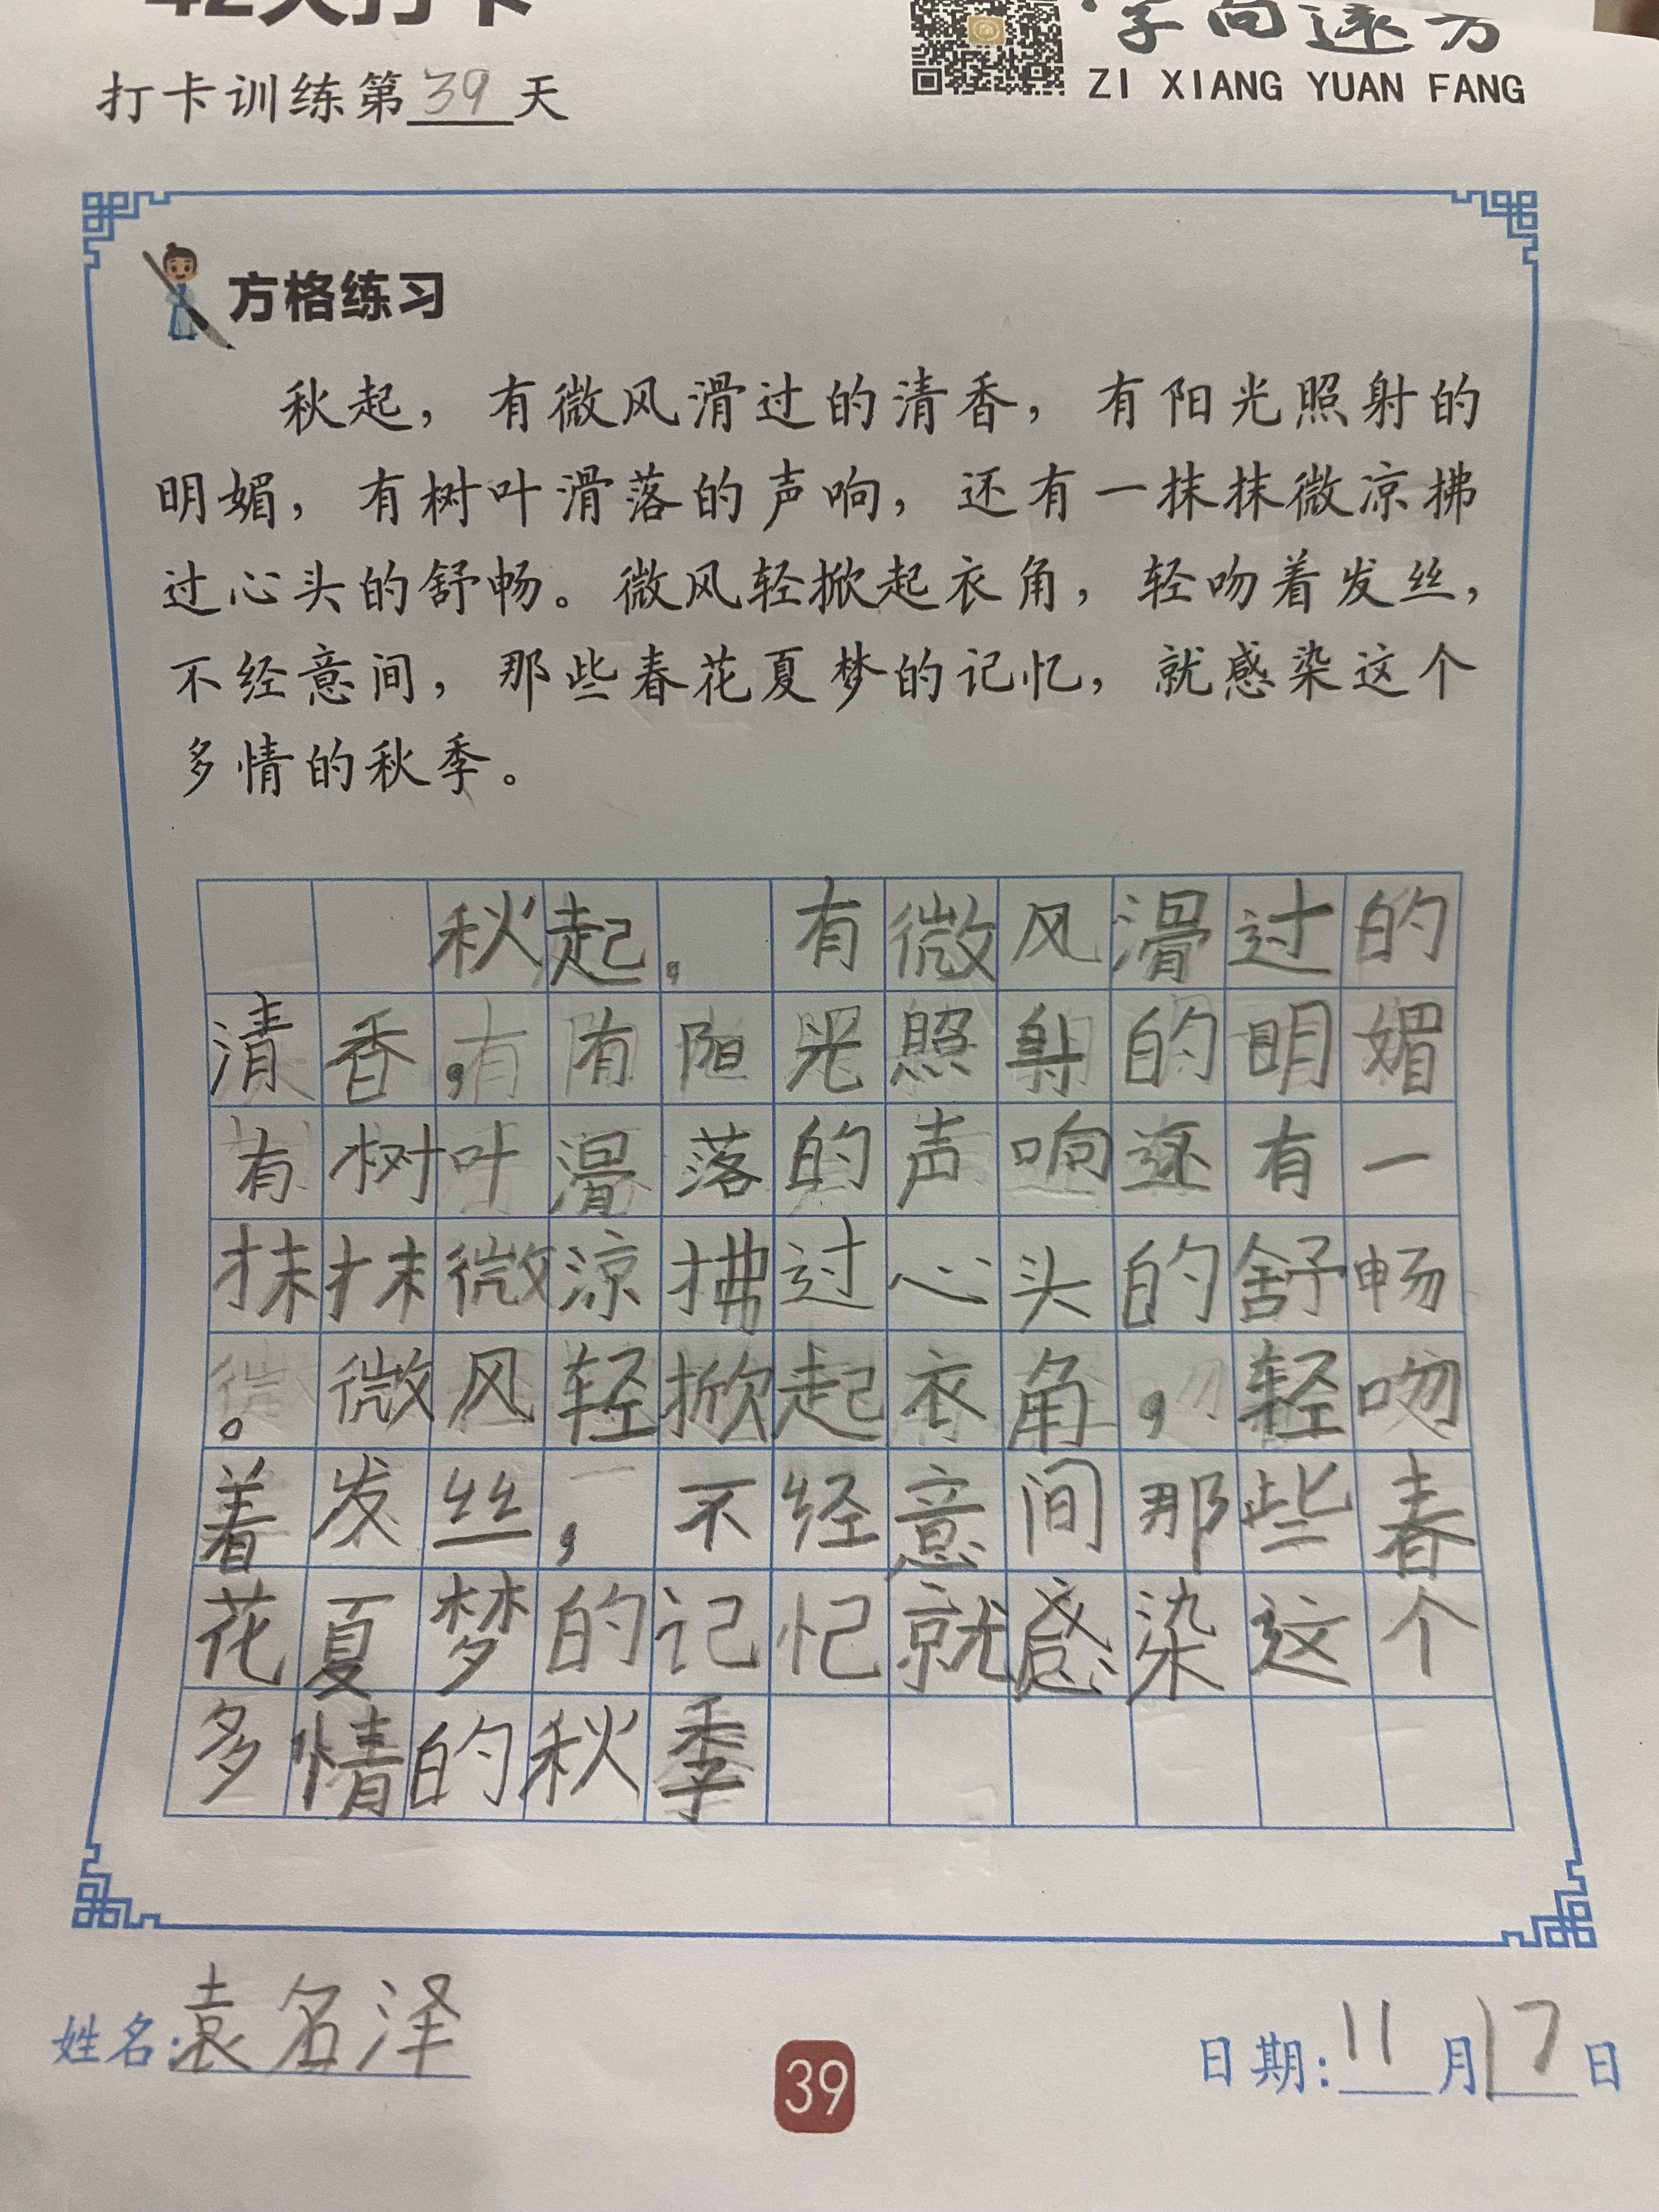 42天打卡
字向远方
打卡训练第39天
ZI XIANG YUAN FANG
方格练习
秋起，有微风滑过的清香，有阳光照射的
明媚，有树叶滑落的声响，还有一抹抹微凉拂
过心头的舒畅。微风轻掀起衣角，轻吻着发丝，
不经意间，那些春花夏梦的记忆，就感染这个
多情的秋季。
秋起，有微风滑过的
清香，有阳光照射的明媚
有树叶滑落的声响还有一
抹抹微凉拂过心头的舒畅
。微风轻掀起衣角，轻吻
着发丝，不经意间那些春
花夏梦的记忆就感染这个
多情的秋季
姓名:袁名泽
39
日期:11月17日